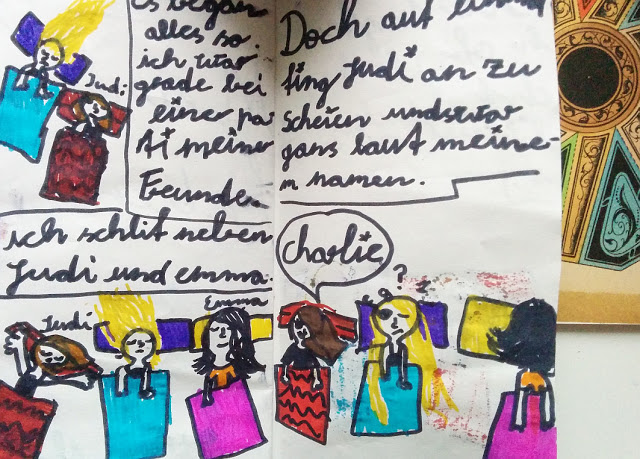 es began
alles so.
ich war
grade bei
einer par
ti meiner
Freunde
Judi
ich schlif neben
Judi und emma.
Judi
Emma
Doch auf einmal
fing Judi an zu
Scheien undswar
gans laut meine-
n namen.
charlie
?